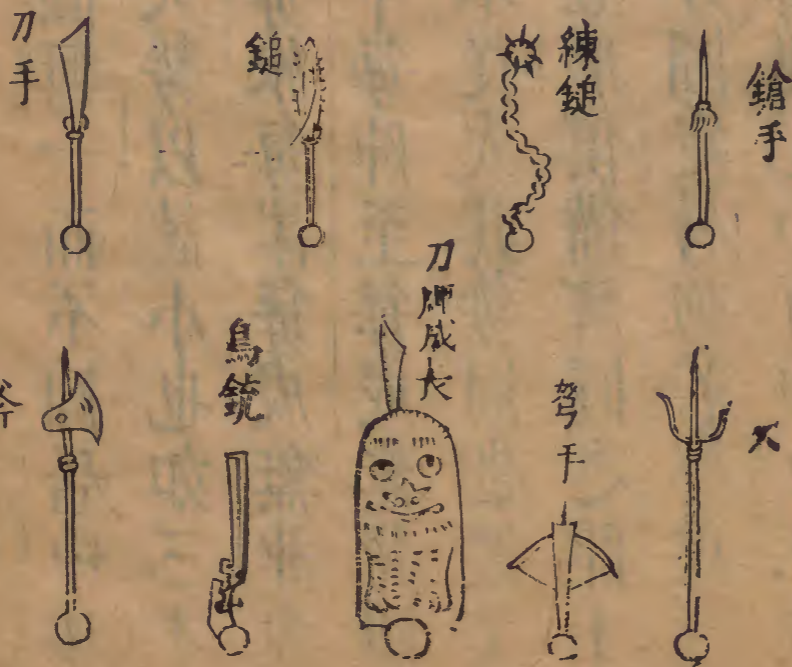 鎗手
練鎚
鎚
刀手
弩手
刀牌成長
鳥銃